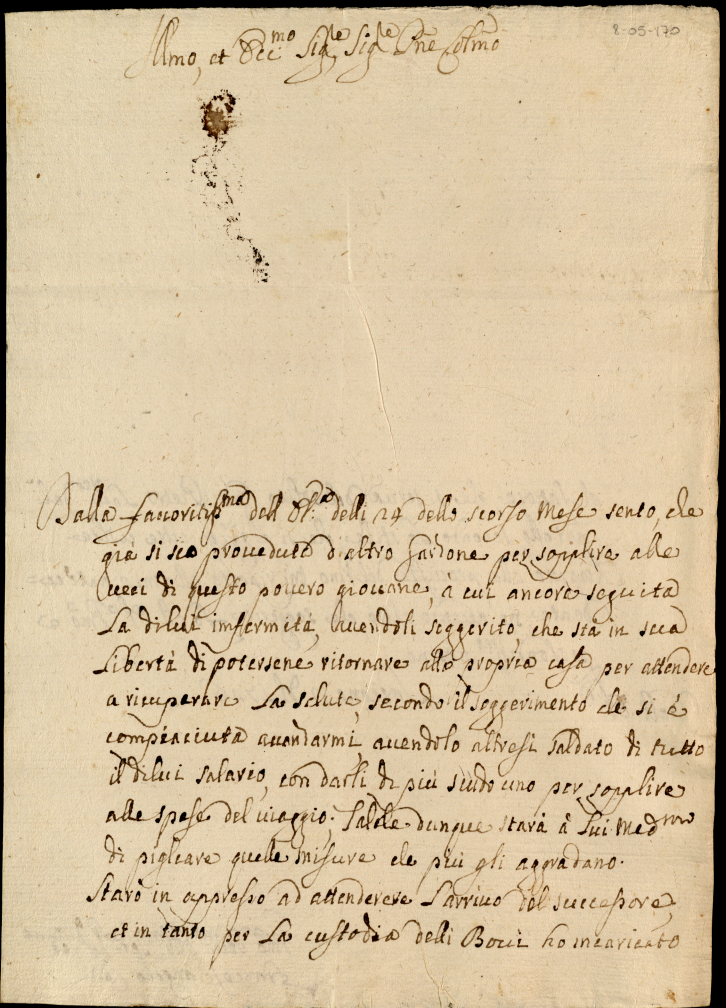 8-05-170
Illmo, et Ecc.mo Sig.re Sig.re Pne Colmo
Dalla favoritiss.ma dell' Ec.za delli 24 dello scorso Mese sento, che
già si sia proveduta d'altro Garzone per supplire alle
veci di questo povero giovane, à cui ancore seguita
La dilui imfermità, avendoli seggerito, che stà in sua
Libertà di potersene ritornare alla propria casa per attendere
a ricuperare La salute, secondo il seggerimento che si è
compiaciuta avandarmi, avendolo altresì saldato di tutto
il dilui salario, con darli di più scudo uno per supplire
alle spese del viaggio; Talche dunque starà à Lui Med.mo
di pigliare quelle misure che più gli aggradano.
Starò in appresso ad attenderere L'arrivo del successore,
et in tanto per La custodia delli Bovi ho incaricato